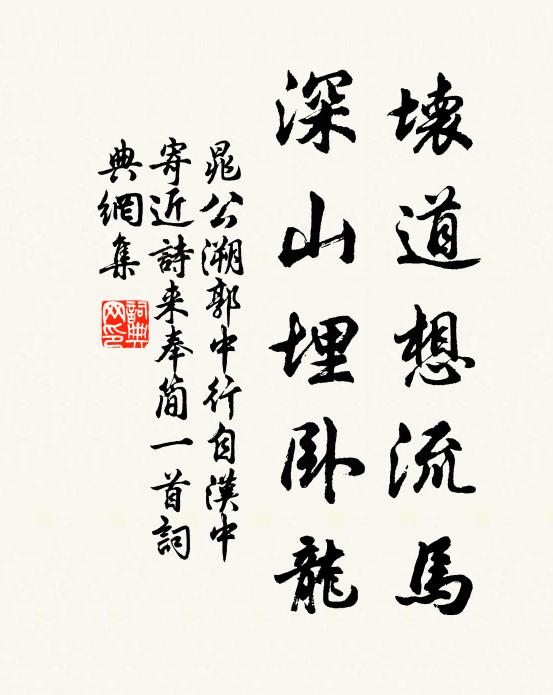 壞道想流馬
深山埋卧龍
晁公溯郭中行自漢中
寄近詩来奉簡一首詞
典網集
詞典網印